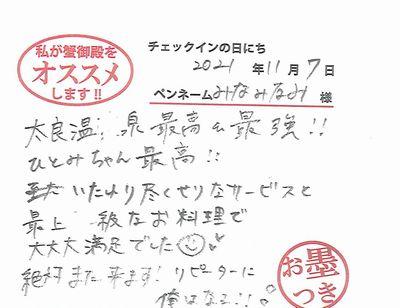 私が蟹御殿を
オススメ
します!!
チェックインの日にち
2021年11月7日
ペンネーム みなみなみ 様
太良温泉最高&最強!!
ひとみちゃん最高!!
いたれり尽くせりなサービスと
最上級なお料理で
大大大満足でした
絶対また来ます!リピーターに
俺はなる!!
お墨つき